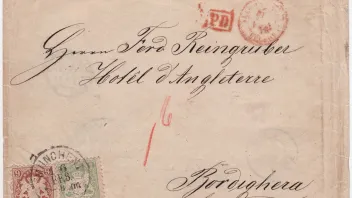 PD
Herrn Ferd Reingruber
Hotel d'Angleterre
Bordighera
MÜNCHEN